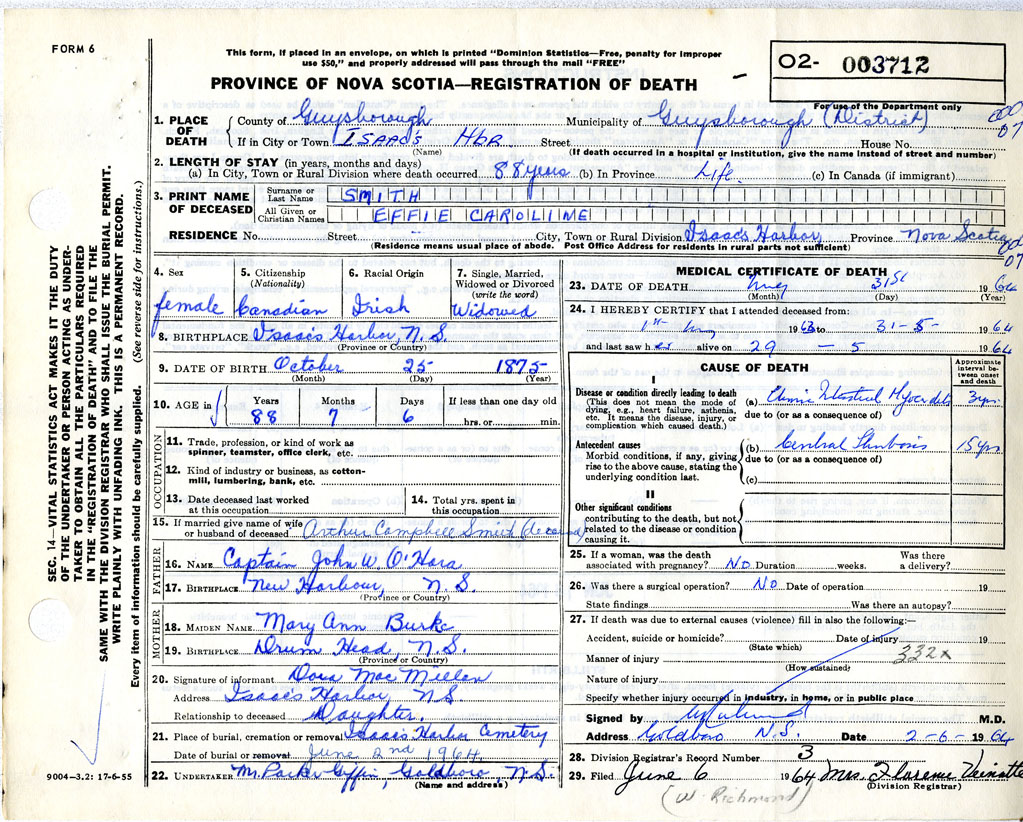 FORM 6
This form, if placed in an envelope, on which is printed "Dominion Statistics—Free, penalty for improper
use $50," and properly addressed will pass through the mail "FREE"
PROVINCE OF NOVA SCOTIA—REGISTRATION OF DEATH
02- 003712
For use of the Department only
1. PLACE OF DEATH County of Guysborough Municipality of Guysborough (District)
If in City or Town ISAAC'S HBR Street House No.
(Name) (If death occurred in a hospital or institution, give the name instead of street and number)
2. LENGTH OF STAY (in years, months and days)
(a) In City, Town or Rural Division where death occurred 88 years (b) In Province Life. (c) In Canada (if immigrant)
3. PRINT NAME OF DECEASED Surname or Last Name SMITH
All Given or Christian Names EFFIE CAROLINE
RESIDENCE No. Street City, Town or Rural Division Isaac's Harbor, Province Nova Scotia
(Residence means usual place of abode. Post Office Address for residents in rural parts not sufficient)
07
07
SEC. 14—VITAL STATISTICS ACT MAKES IT THE DUTY
OF THE UNDERTAKER OR PERSON ACTING AS UNDER-
TAKER TO OBTAIN ALL THE PARTICULARS REQUIRED
IN THE "REGISTRATION OF DEATH" AND TO FILE THE
SAME WITH THE DIVISION REGISTRAR WHO SHALL ISSUE THE BURIAL PERMIT.
WRITE PLAINLY WITH UNFADING INK. THIS IS A PERMANENT RECORD.
Every item of information should be carefully supplied. (See reverse side for instructions.)
4. Sex female
5. Citizenship (Nationality) Canadian
6. Racial Origin Irish
7. Single, Married, Widowed or Divorced (write the word) Widowed
8. BIRTHPLACE Isaac's Harbor, N.S.
(Province or Country)
9. DATE OF BIRTH October 25 1875
(Month) (Day) (Year)
10. AGE in Years Months Days If less than one day old
88 7 6 hrs. or min.
OCCUPATION
11. Trade, profession, or kind of work as
spinner, teamster, office clerk, etc.
12. Kind of industry or business, as cotton-
mill, lumbering, bank, etc.
13. Date deceased last worked
at this occupation
14. Total yrs. spent in
this occupation
15. If married give name of wife
or husband of deceased Arthur Campbell Smith (deceased)
FATHER
16. NAME Captain John W. O'Hara
17. BIRTHPLACE New Harbour, N.S.
(Province or Country)
MOTHER
18. MAIDEN NAME Mary Ann Burke
19. BIRTHPLACE Drum Head, N.S.
(Province or Country)
20. Signature of informant Dora MacMillan
Address Isaac's Harbor, N.S.
Relationship to deceased Daughter.
21. Place of burial, cremation or removal Isaac's Harbor Cemetery
Date of burial or removal June 2nd 1964
22. UNDERTAKER Mr. Parker Giffin, Goldboro, N.S.
(Name and address)
9004—3.2: 17-6-55
MEDICAL CERTIFICATE OF DEATH
23. DATE OF DEATH May 31st 1964
(Month) (Day) (Year)
24. I HEREBY CERTIFY that I attended deceased from:
1st May 1963 to 31-5-1964
and last saw her alive on 29 - 5 1964
CAUSE OF DEATH
Approximate interval between onset and death
I
Disease or condition directly leading to death
(This does not mean the mode of
dying, e.g., heart failure, asthenia,
etc. It means the disease, injury, or
complication which caused death.)
(a) Myocarditis 3 yrs.
due to (or as a consequence of)
Antecedent causes
Morbid conditions, if any, giving
rise to the above cause, stating the
underlying condition last.
(b) Cerebral Thrombosis 15 yrs
due to (or as a consequence of)
(c)
II
Other significant conditions
contributing to the death, but not
related to the disease or condition
causing it.
25. If a woman, was the death Was there
associated with pregnancy? No Duration weeks. a delivery?
26. Was there a surgical operation? No Date of operation 19
State findings Was there an autopsy?
27. If death was due to external causes (violence) fill in also the following:—
Accident, suicide or homicide? Date of injury 19
(State which)
332x
Manner of injury
(How sustained)
Nature of injury
Specify whether injury occurred in industry, in home, or in public place
Signed by M.D.
Address Goldboro N.S. Date 2-6-1964
28. Division Registrar's Record Number 3
29. Filed June 6 1964 Mrs. Florence Veinotte
(Division Registrar)
(W. Richmond)